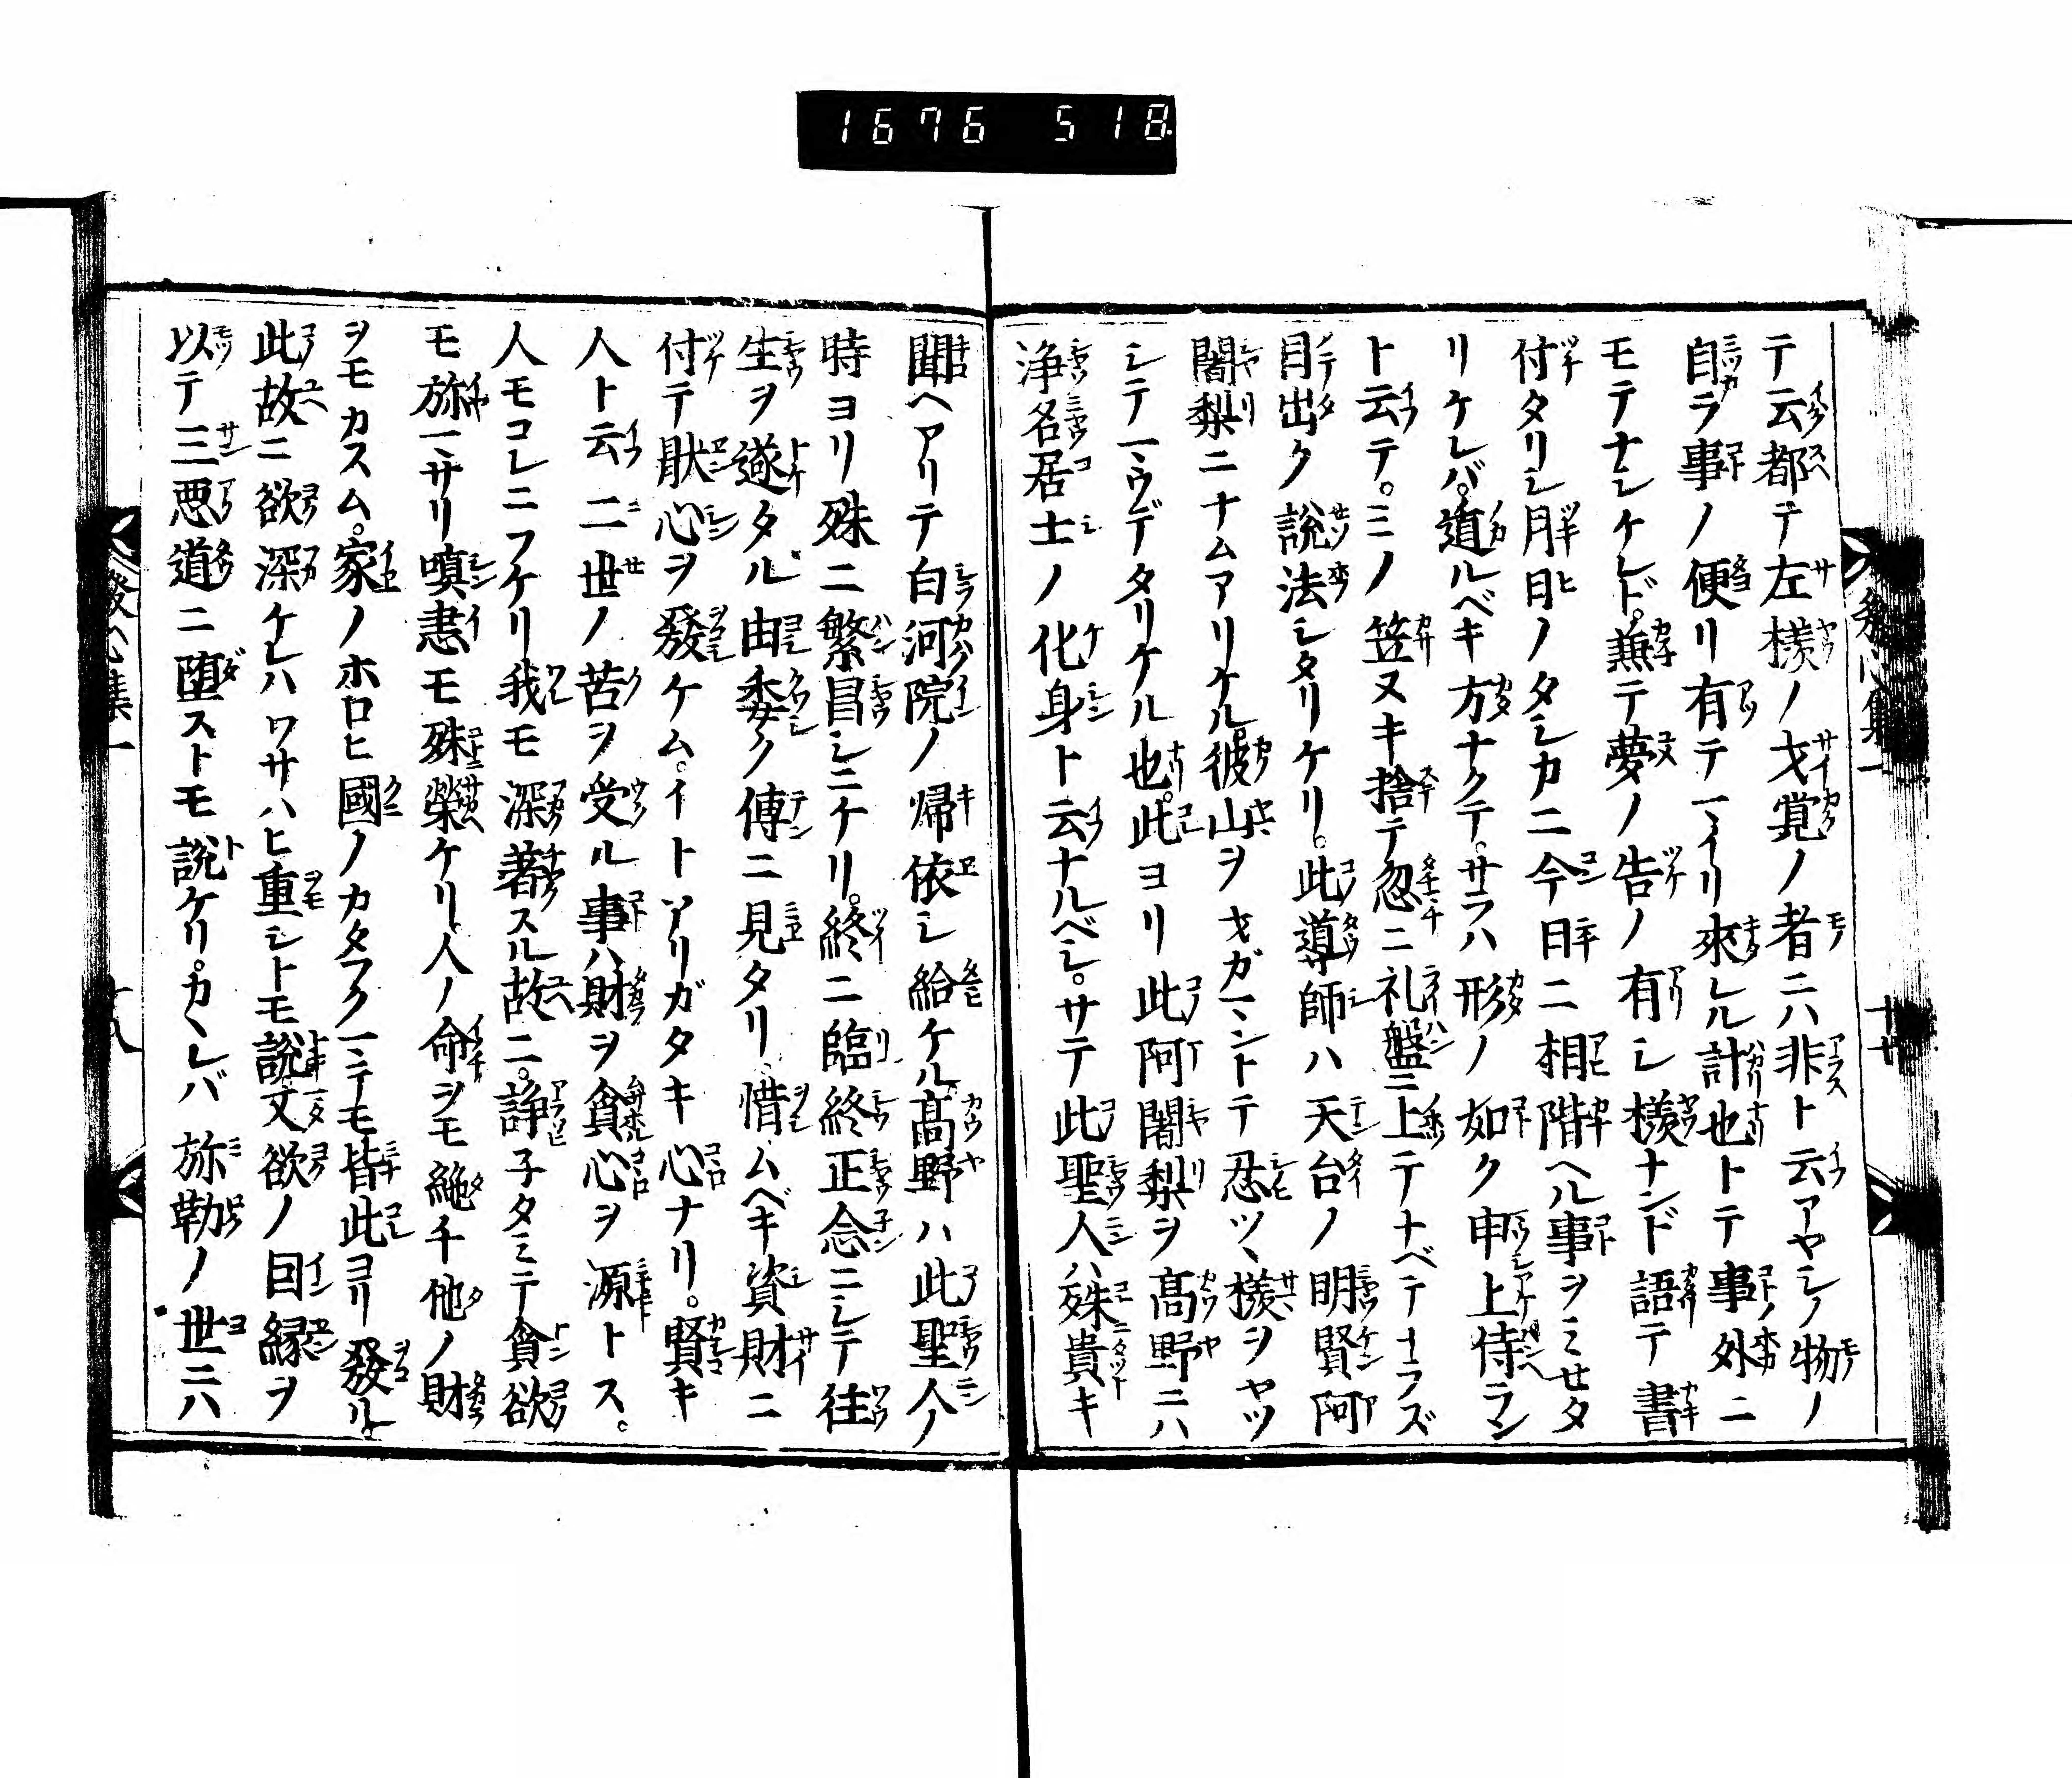 1676 518
テ云都テ左様ノ才覚ノ者ニハ非ト云アヤシノ物ノ
自ラ事ノ便リ有テマイリ来レル計也トテ事ノ外ニ
モテナシケレド。兼テ夢ノ告ノ有シ様ナンド語テ書
付タリシ月日ノタシカニ今日ニ相階ヘル事ヲミセタ
リケレバ。遁ルベキ方ナクテ。サラハ形ノ如ク申上侍ラン
ト云テ。ミノ笠ヌキ捨テ忽ニ礼盤ニ上テナベテナラズ
目出ク説法シタリケリ。此導師ハ天台ノ明賢阿
闍梨ニナムアリケル。彼山ヲオガマントテ忍ツヽ様ヲヤツ
シテマウデタリケル也。此ヨリ此阿闍梨ヲ高野ニハ
浄名居士ノ化身ト云ナルベシ。サテ此聖人ハ殊貴キ
聞ヘアリテ白河院ノ帰依シ給ケル。高野ハ此聖人ノ
時ヨリ殊ニ繁昌シニケリ。終ニ臨終正念ニシテ往
生ヲ遂タル由委ク傳ニ見タリ。惜ムベキ資財ニ
付テ猒心ヲ發ケム。イトアリガタキ心ナリ。賢キ
人ト云二世ノ苦ヲ受ル事ハ財ヲ貪心ヲ源トス。
人モコレニフケリ我モ深著スル故ニ。諍子タミテ貪欲
モ弥マサリ嗔恚モ殊栄ケリ。人ノ命ヲモ絶チ他ノ財
ヲモカスム。家ノホロヒ國ノカタフクマテモ皆此ヨリ發ル。
此故ニ欲深ケレハワサハヒ重シトモ説文欲ノ因縁ヲ
以テ三悪道ニ堕ストモ説ケリ。カヽレバ弥勒ノ世ニハ
發心集一
十八